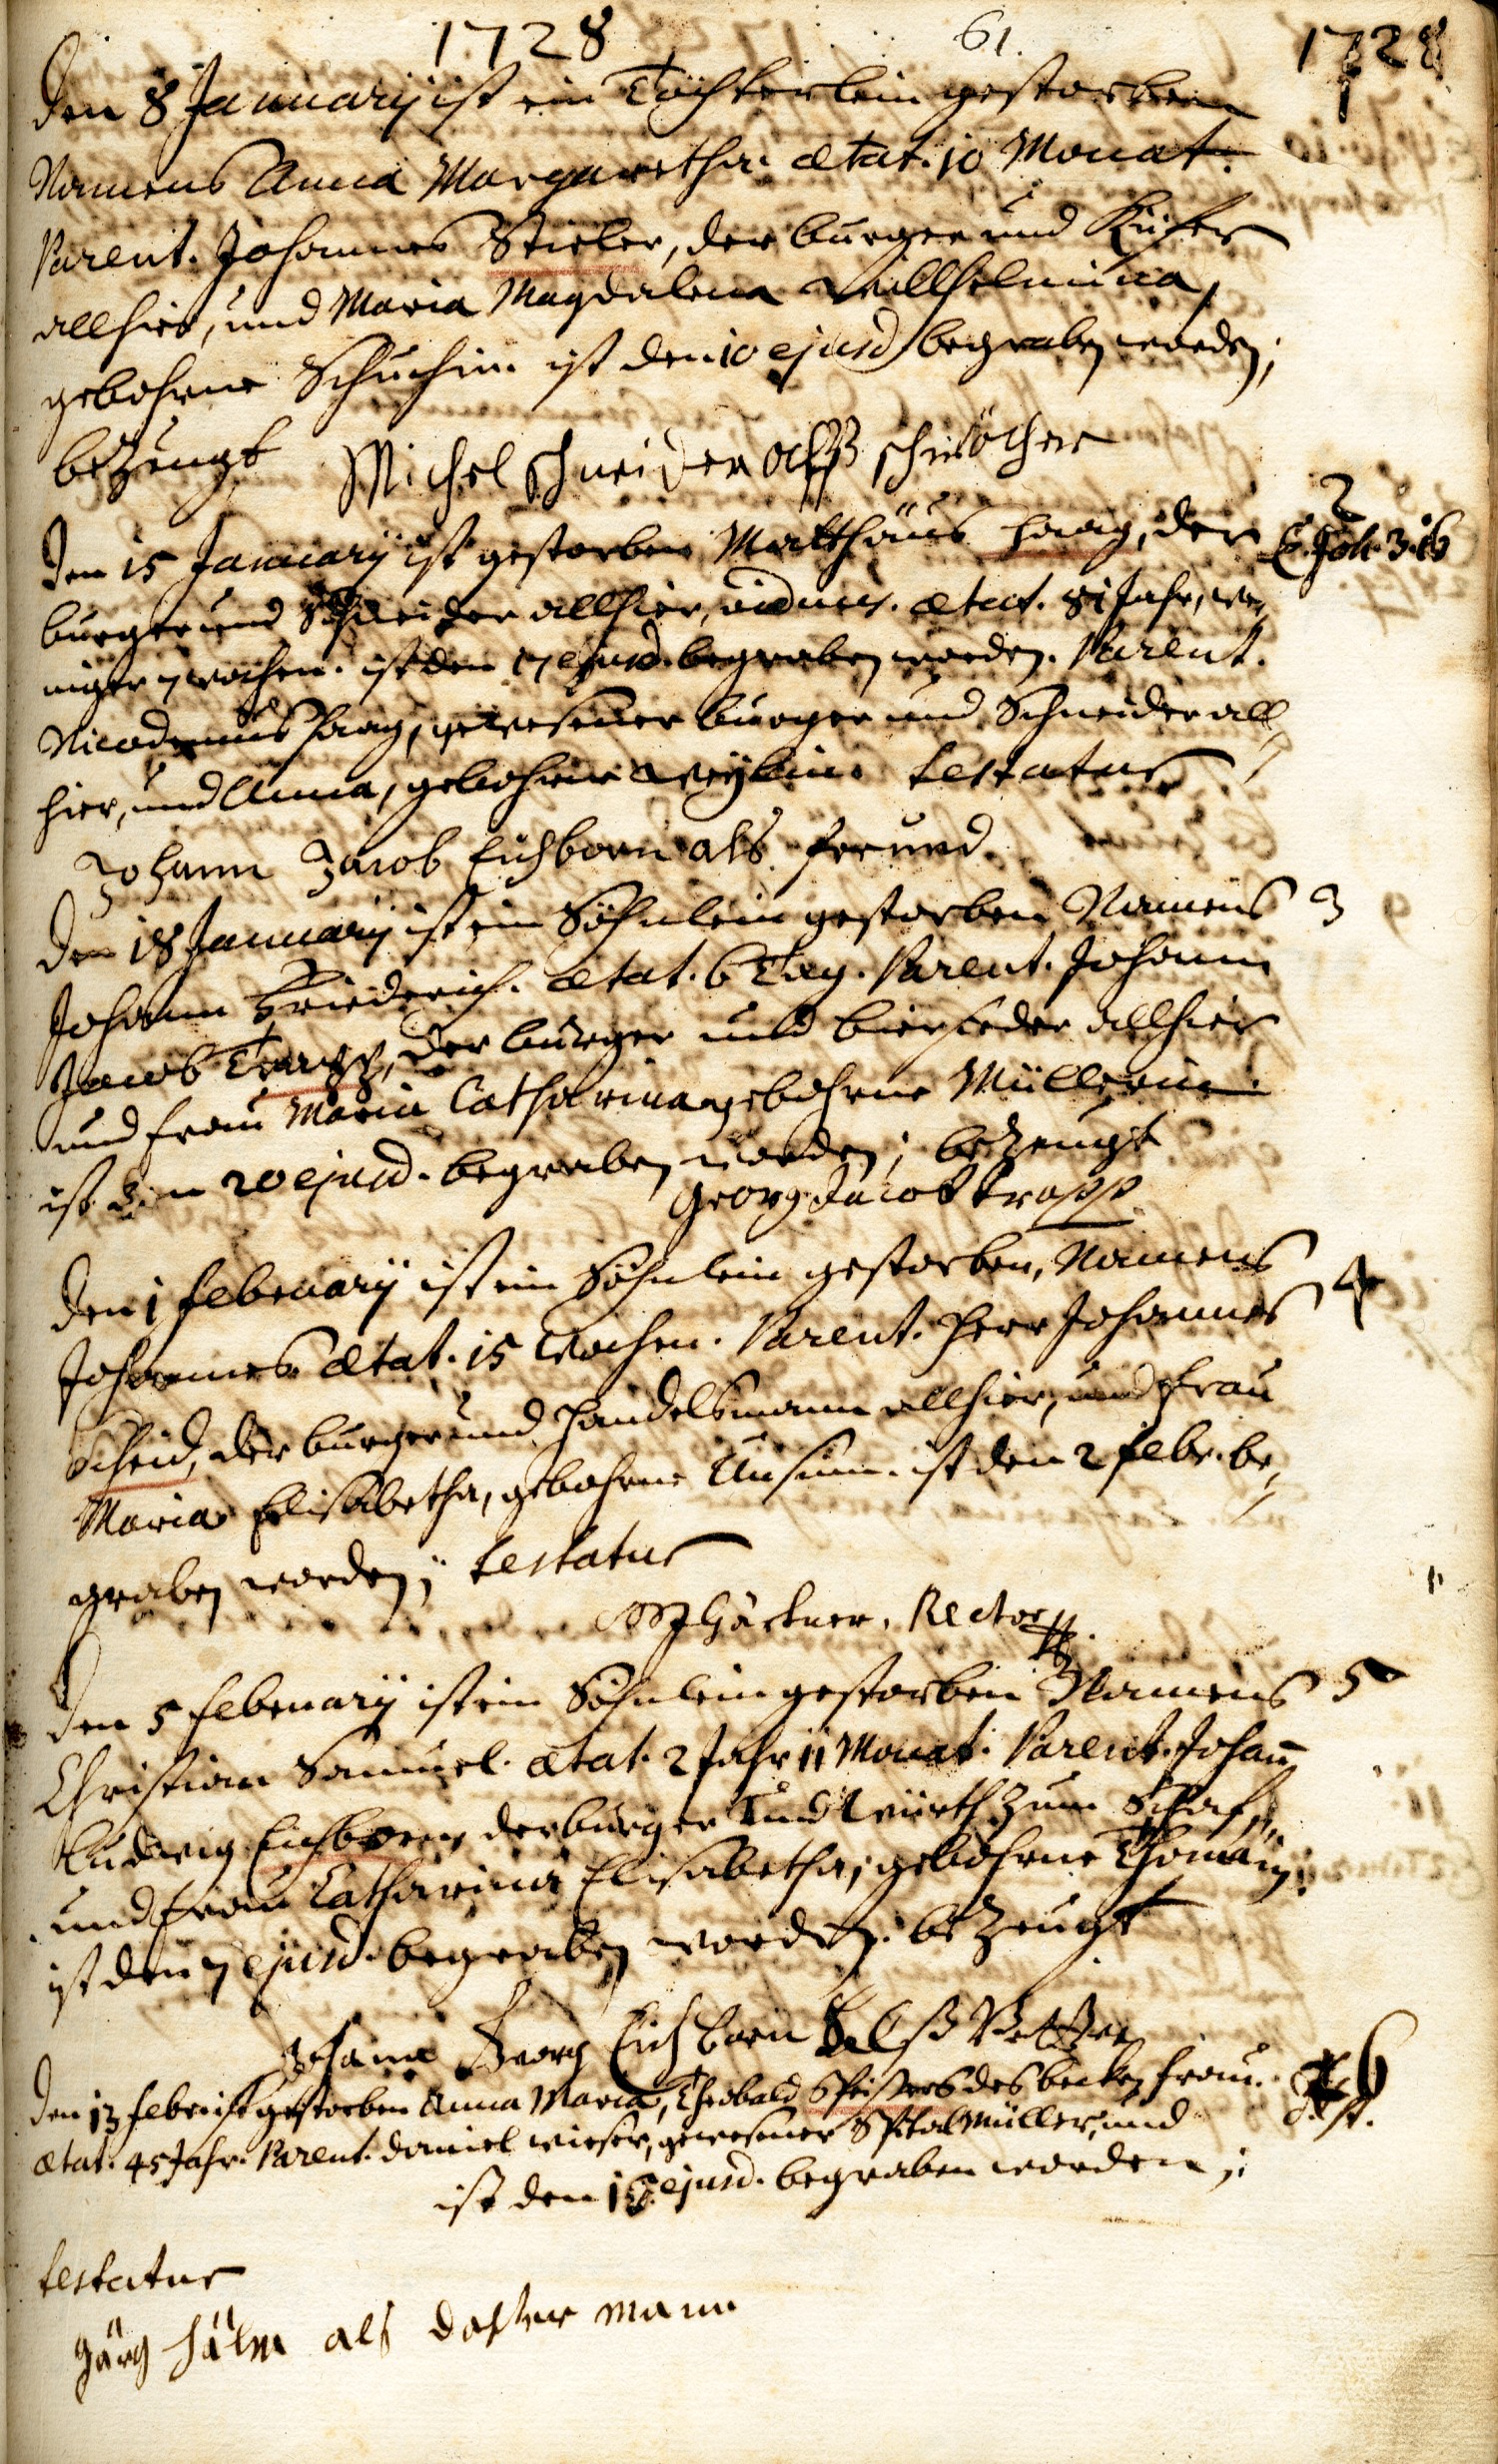 1728 61. 1728
Den 8 Januarij ist ein Töchterlein gestorben 1
Namens Anna Margaretha. ætat. 10 Monat.
Parent. Johannes Stieler, der burger und Küfer
allhier, und Maria Magdalena Willhelmina,
gebohrne Schuchin. ist den 10 ejusd begraben worden;
bezeugt Michel schneider alß
Den 15 Januarij ist gestorben Matthäus Haag, der 2
burger und Schneider allhier, viduus. ætat. 81 Jahr, we, L. Joh. 3.16
niger 7 wochen. ist den 17 ejusd. begraben worden. Parent.
Nicodemus Haag, gewesener burger und Schneider all,
hier, und Anna, gebohrne testatur
Johann Jacob Eichborn als freund.
Den 18 Januarij ist ein Söhnlein gestorben Namens 3
Johann Friederich. ætat. 6 Tag. Parent. Johann
Jacob Trapp, der burger und biersieder allhier
und frau Maria Catharina gebohrne Müllerin.
ist den 20 ejusd. begraben worden; bezeugt
Georg Jacob trapp
Den 1 februarij ist ein Söhnlein gestorben, Namens 4
Johannes. ætat. 15 Wochen. Parent. Herr Johannes
Scheid, der burger und Handelsmann allhier, und frau
Maria Elisabetha, gebohrne ist den 2 febr. be,
graben worden; testatur
Gärtner, Rector
Den 5 februarij ist ein Söhnlein gestorben Namens 5
Christian Samuel. ætat. 2 Jahr 11 Monat. Parent. Johan̄
Ludwig Eichborn, der burger und Würth zum Schaf,
und frau Catharina Elisabetha, gebohrne Thomäin;
ist den 7 ejusd. begraben worden. bezeugt
Johann Georg Eichborn alß Vetter
Den 13 febr. ist gestorben Anna Maria, Theobald Pfisters des becken frau. 6
ætat. 45 Jahr. Parent. Daniel wieser, gewesener Spital Müller, und
ist den ejusd. begraben worden;
testatur
Görg hälm als dochter mann